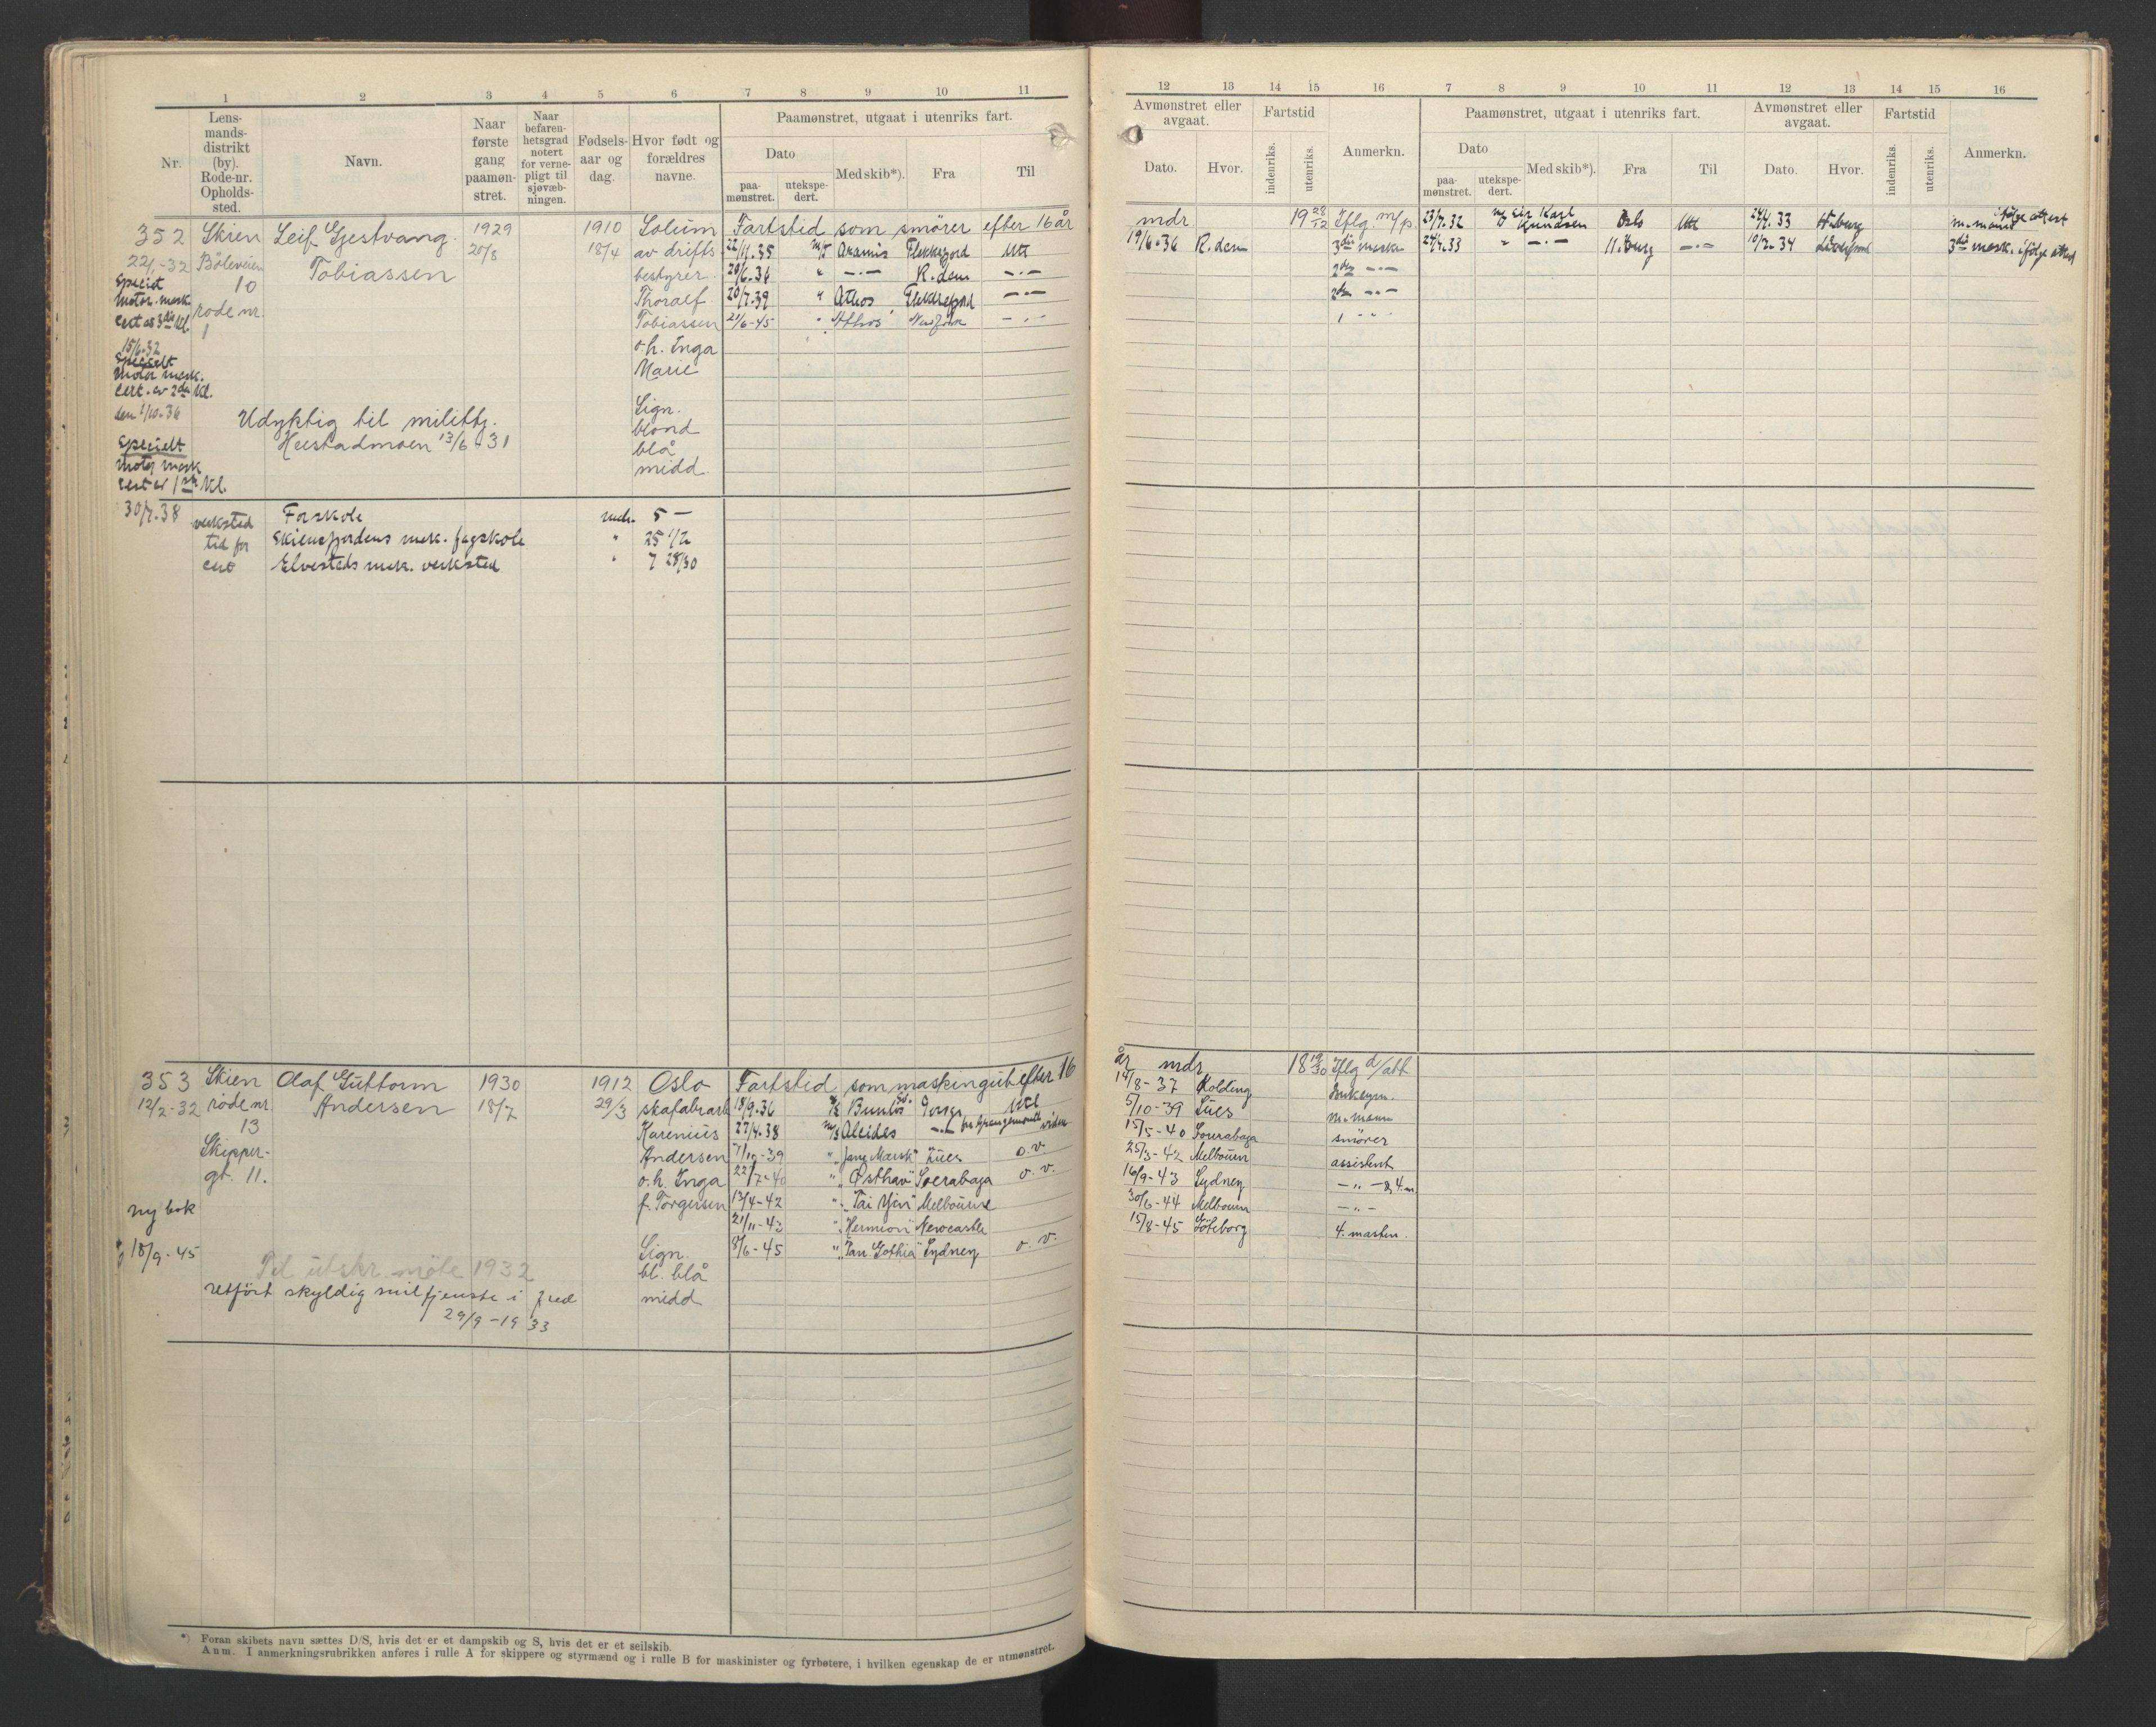 1 2 3 4 5 6 7 8 9 10 11
Nr.
Lens-
mands-
distrikt
(by).
Rode-nr.
Opholds-
sted.
Navn.
Naar
første
gang
paamøn-
stret.
Naar
befaren-
hetsgrad
notert
for verne-
pligt til
sjøvæb-
ningen.
Fødsels-
aar og
dag.
Hvor født og
forældres
navne.
Paamønstret, utgaat i utenriks fart.
Dato
paa-
mønstret.
utekspe-
dert.
Med skib*).
Fra
Til
352 Skien Leif Gjestvang 1929 1910 Solum Fartstid som smører efter 16 år
22/1-32 Bøleveien Tobiassen 20/8 18/4 av drifts 22/11.35 M/T Aramis Flekkefjord Utt
10 bestyrer 20/6.36 " —·— R.dam —·—
rode nr. Thoralf 20/7.39 " Athos Flekkefjord —·—
1 Tobiassen 21/6-45 " Athos New York — " —
o.h. Inga
Marie
Motor mask.
cert av 3die kl.
15/6.32
Specielt
Motor mask.
Cert. av 2den kl.
den 1/10.36
Specielt
Motor mask
cert av 1ste kl.
30/7.38
Udyktig til milittj.
13/6-31
Lign.
blond
blå
midd.
verksted Forskole mdr. 5 —
tid for Skiensfjordens mek. fagskole " 25 1/2
cert Elvesteds mek. verksted " 7 28/30
353 Skien Olaf Guttorm 1930 1912 Oslo Fartstid som maskingut efter 16
12/2-32 rode nr. Andersen 18/7 29/3 skofabrarb 18/9.36 Utl
13 Karenius 27/4.38 M/S Alcides
Skipper- Andersen 7/10-39 " Suez o.v.
gt. 11. o.h. Inga 22/7-40 " "Østhav" Soerabaga o.v.
f. Torgersen 13/4-42 " "Tai Yin" Melbourne
ny bok 21/11-43 " "Hermion" Newcastle
18/9-45 Lign. 8/6-45 " "Tan. Gothia" Sydney o.v.
Til utskr. møte 1932 bl. blå
retført skyldig miltjeneste i fred midd
29/9-1933
*) Foran skibets navn sættes D/S, hvis det er et dampskib og S, hvis det er et seilskib.
Anm. I anmerkningsrubrikken anføres i rulle A for skippere og styrmænd og i rulle B for maskinister og fyrbøtere, i hvilken egenskap de er utmønstret.
12 13 14 15 16 7 8 9 10 11 12 13 14 15 16
Avmønstret eller
avgaat.
Dato.
Hvor.
Fartstid
indenriks.
utenriks.
Anmerkn.
Paamønstret, utgaat i utenriks fart.
Dato
paa-
mønstret.
utekspe-
dert.
Med skib*).
Fra
Til
Avmønstret eller
avgaat.
Dato.
Hvor.
Fartstid
indenriks.
utenriks.
Anmerkn.
mdr 19 28/12 Iflg. m/p. 23/7.32 Sir Karl Knudsen Oslo Utt 24/4.33 H.burg m.mann ifølge attest
19/6.36 R.dam 3die mask. 24/4.33 " —·— H.burg —·— 10/2.34 3die mask. ifølge attest
2den —·—
2den —·—
1 " "
år mdr 18 19/30 Iflg d/att
14/8-37 Kolding
5/10-39 Suez m.mann
15/5-40 Sourabaga smører
25/3-42 Melbourn assistent
16/9-43 Sydney — " — & 4.m
30/6-44 Melbourn — " —
15/8-45 Göteborg 4. masten.